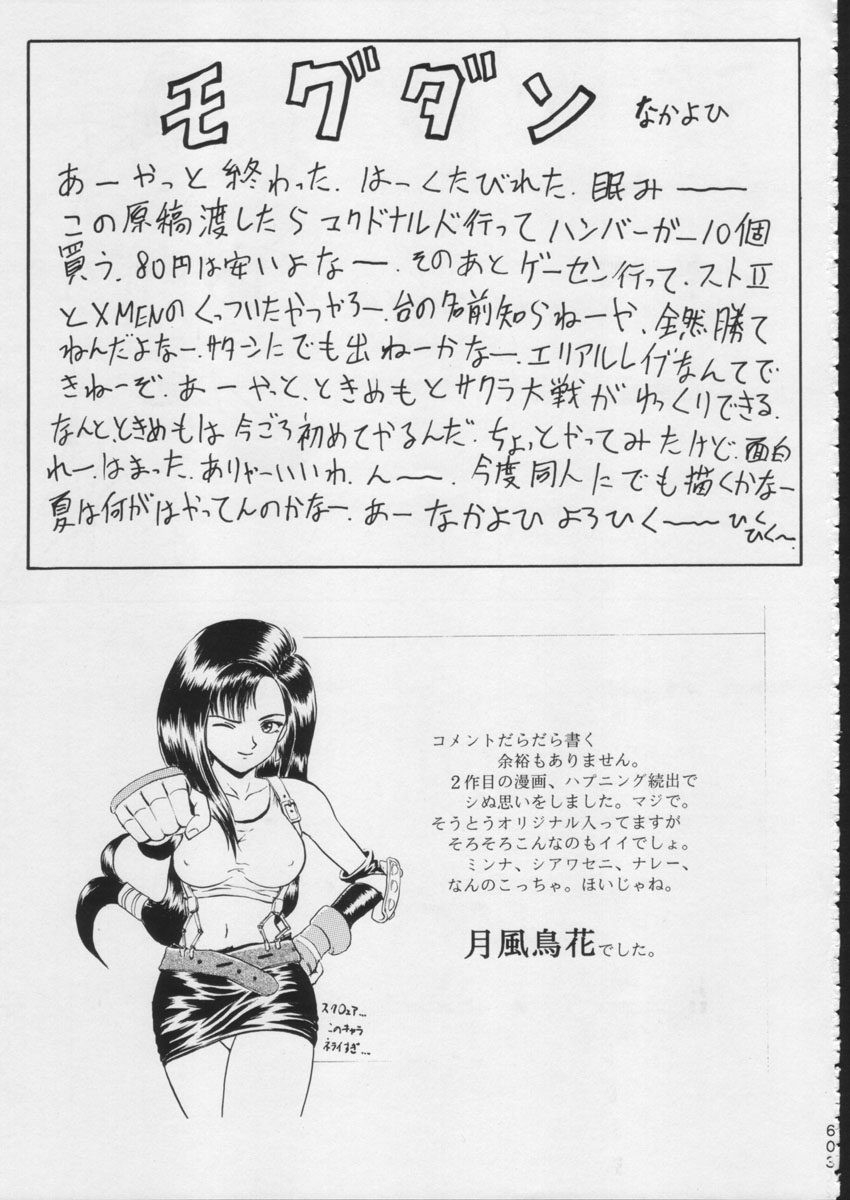 モグダン なかよひ
あーやっと終わった. はーくたびれた. 眠みー
この原稿渡したらマクドナルド行ってハンバーガー10個
買う. 80円は安いよなー. そのあとゲーセン行って. ストII
とXMENのくっついたやつやろー. 台の名前知らねーや、全然勝て
ねんだよなー. サターンにでも出ねーかなー. エリアルレイブなんてで
きねーぞ. あーやっと、ときめもとサクラ大戦がゆっくりできる.
なんと、ときめもは今ごろ初めてやるんだ. ちょっとやってみたけど. 面白
れー. はまった. ありゃーいいわ. んー. 今度同人にでも描くかなー
夏は何がはやってんのかなー. あーなかよひよろひくー ひくひくー.
コメントだらだら書く
余裕もありません。
2作目の漫画、ハプニング続出で
シぬ思いをしました。マジで。
そうとうオリジナル入ってますが
そろそろこんなのもイイでしょ。
ミンナ、シアワセニ、ナレー、
なんのこっちゃ。ほいじゃね。
月風鳥花でした。
スクウェア...
このキャラ
ネライすぎ...